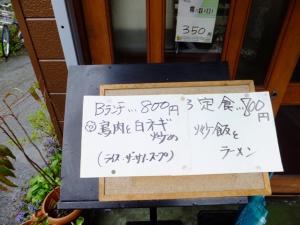 350
Bランチ…800円
鶏肉と白ネギ
炒め
(ライス・ザーサイ・スープ)
定食…800円
炒飯と
ラーメン